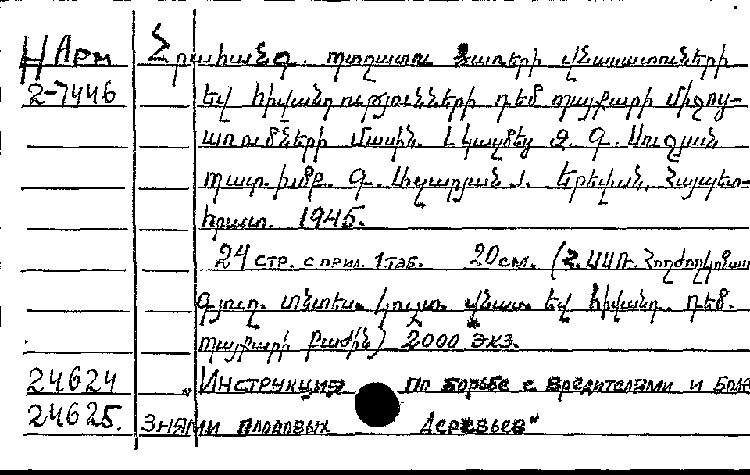 Н Арм Հրահանգ. պտղատու ծառերի վնասատուների
2-7446 եվ հիվանդությունների դեմ պայքարի միջոց-
առումների մասին. Կազմեց Ջ. Գ.
պատ. խմբ. Գ. Երեվան, Հայպետ-
հրատ. 1945.
24 стр. с прил. 1 таб. 20 см. (Հ.ՍՍՌ. Հողժողկոմատ
գյուղ. տնտես. կուլտ. վնաս. եվ հիվանդ. դեմ.
պայքարի բաժին) 2000 экз.
24624 „Инструкция по борьбе с вредителями и боле
24625. знями плодовых деревьев"